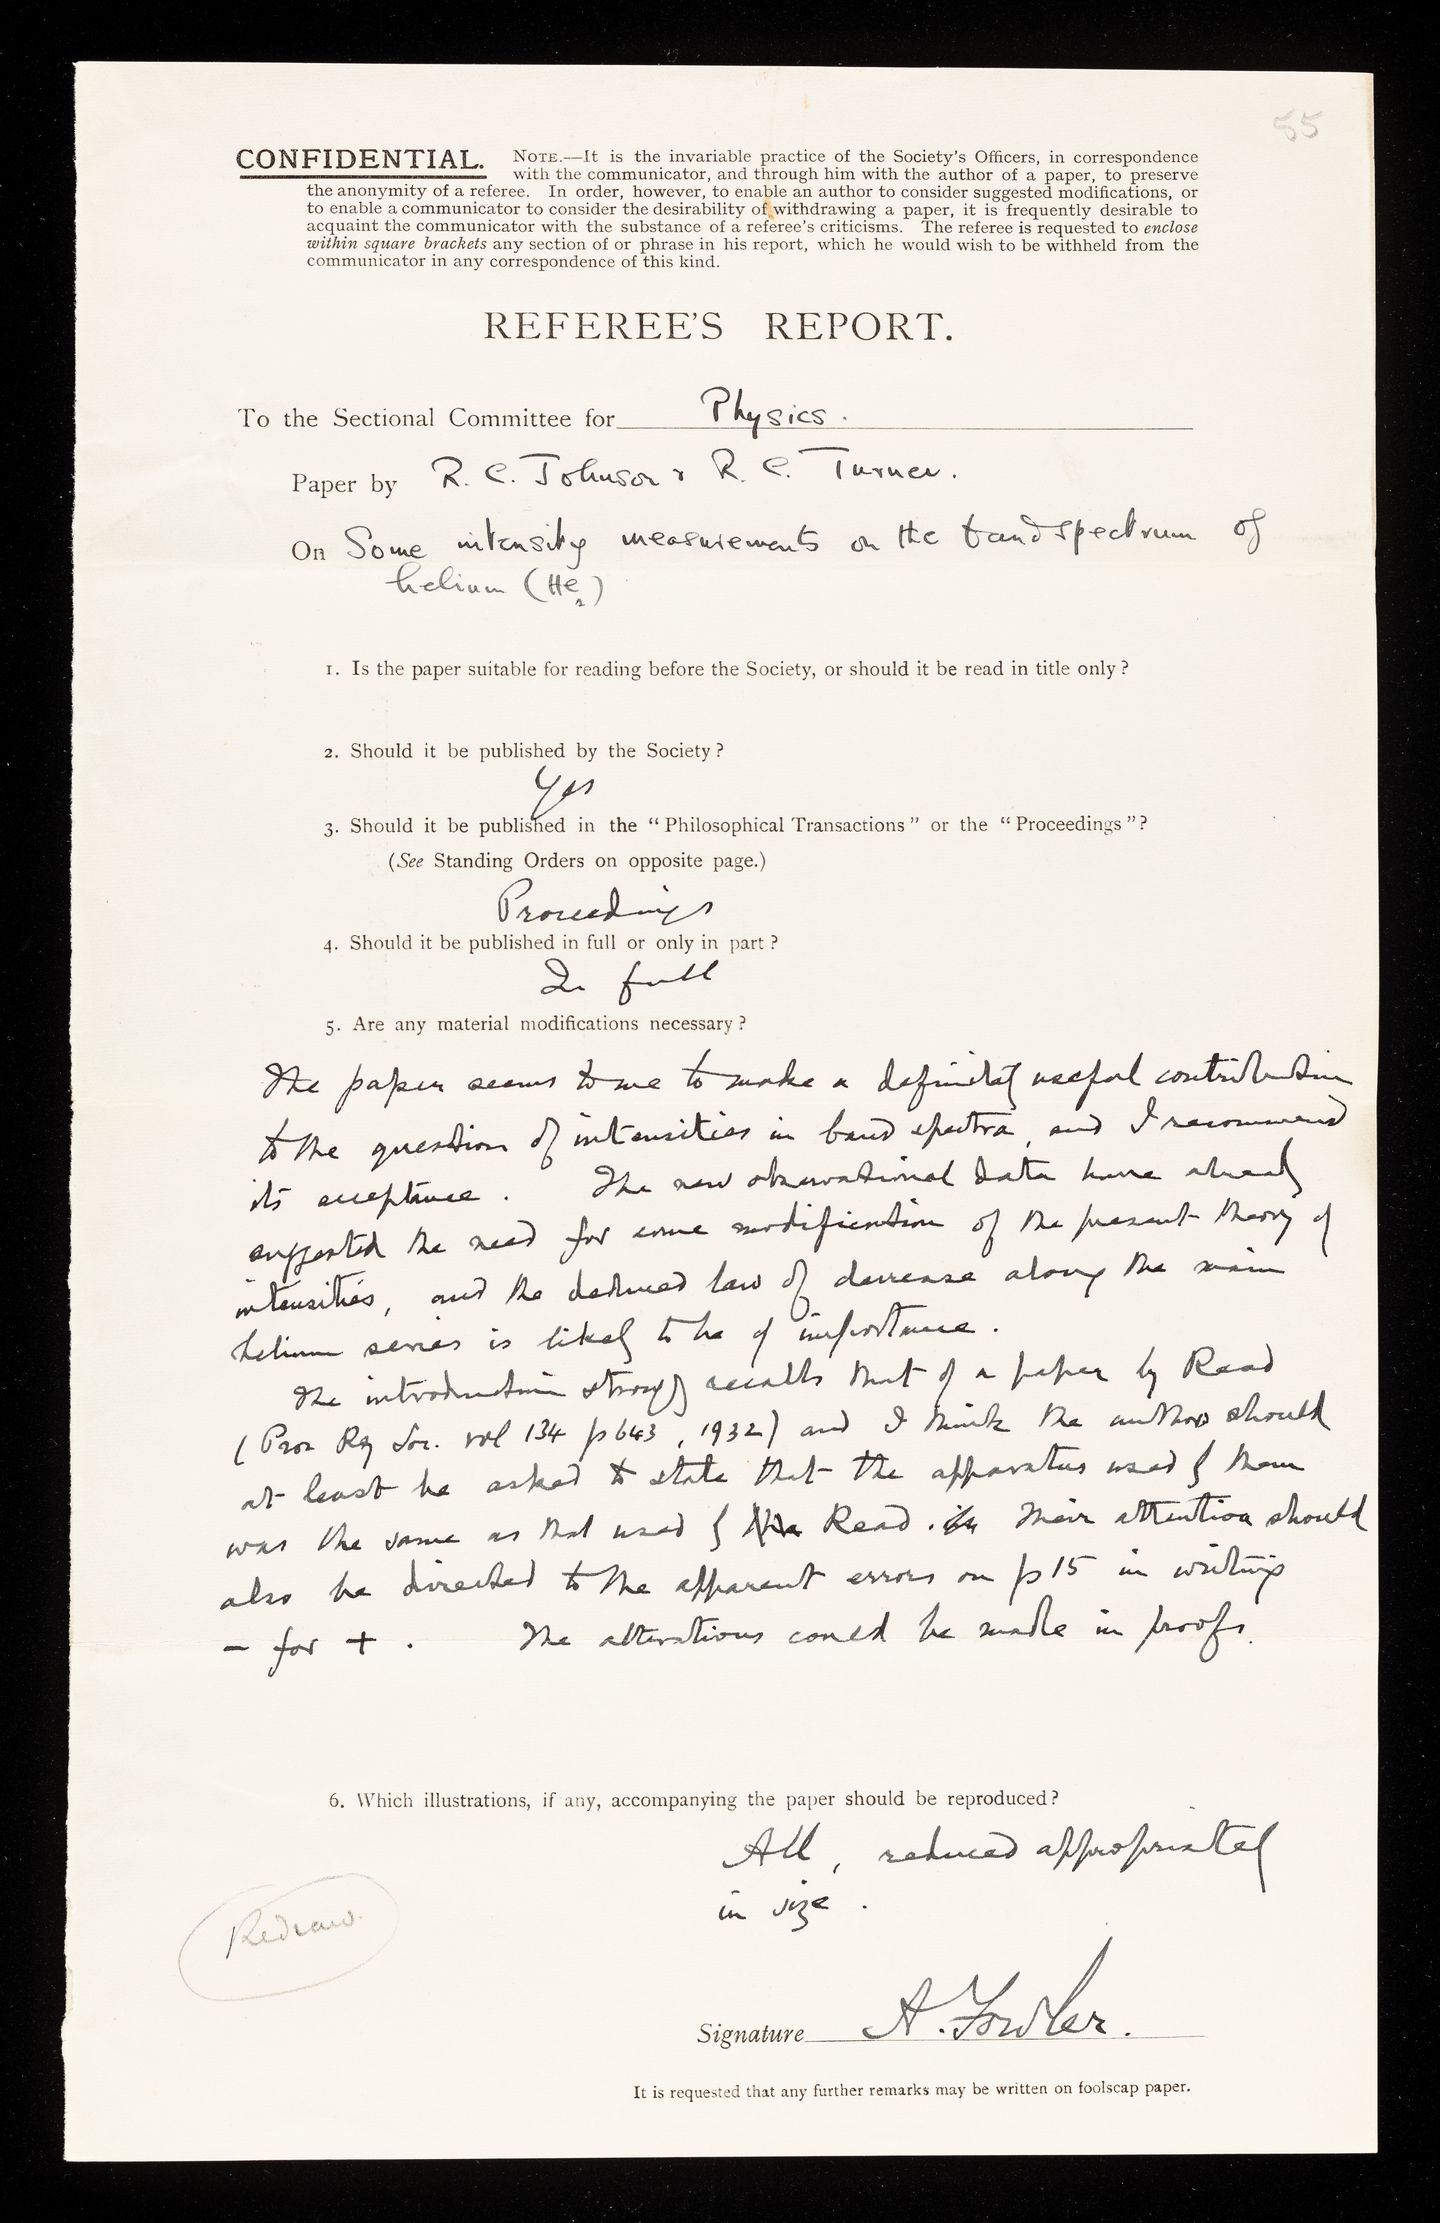 55
CONFIDENTIAL. NOTE.—It is the invariable practice of the Society's Officers, in correspondence
with the communicator, and through him with the author of a paper, to preserve
the anonymity of a referee. In order, however, to enable an author to consider suggested modifications, or
to enable a communicator to consider the desirability of withdrawing a paper, it is frequently desirable to
acquaint the communicator with the substance of a referee's criticisms. The referee is requested to enclose
within square brackets any section of or phrase in his report, which he would wish to be withheld from the
communicator in any correspondence of this kind.
REFEREE'S REPORT.
To the Sectional Committee for Physics.
Paper by R. C. Johnson & R. C. Turner.
On Some intensity measurements on the band spectrum of
helium (He₂)
1. Is the paper suitable for reading before the Society, or should it be read in title only?
2. Should it be published by the Society?
Yes
3. Should it be published in the "Philosophical Transactions" or the "Proceedings"?
(See Standing Orders on opposite page.)
Proceedings
4. Should it be published in full or only in part?
In full
5. Are any material modifications necessary?
The paper seems to me to make a definitely useful contribution
to the question of intensities in band spectra, and I recommend
its acceptance. The new observational data have already
suggested the need for some modification of the present theory of
intensities, and the deduced law of decrease along the main
helium series is likely to be of importance.
The introduction strongly recalls that of a paper by Read
(Proc Roy Soc. vol 134 p 643, 1932) and I think the authors should
at least be asked to state that the apparatus used by them
was the same as that used by Read. Their attention should
also be directed to the apparent errors on p 15 in writing
– for +. The alterations could be made in proofs.
6. Which illustrations, if any, accompanying the paper should be reproduced?
All, reduced appropriately
in size.
Redraw.
Signature A. Fowler.
It is requested that any further remarks may be written on foolscap paper.